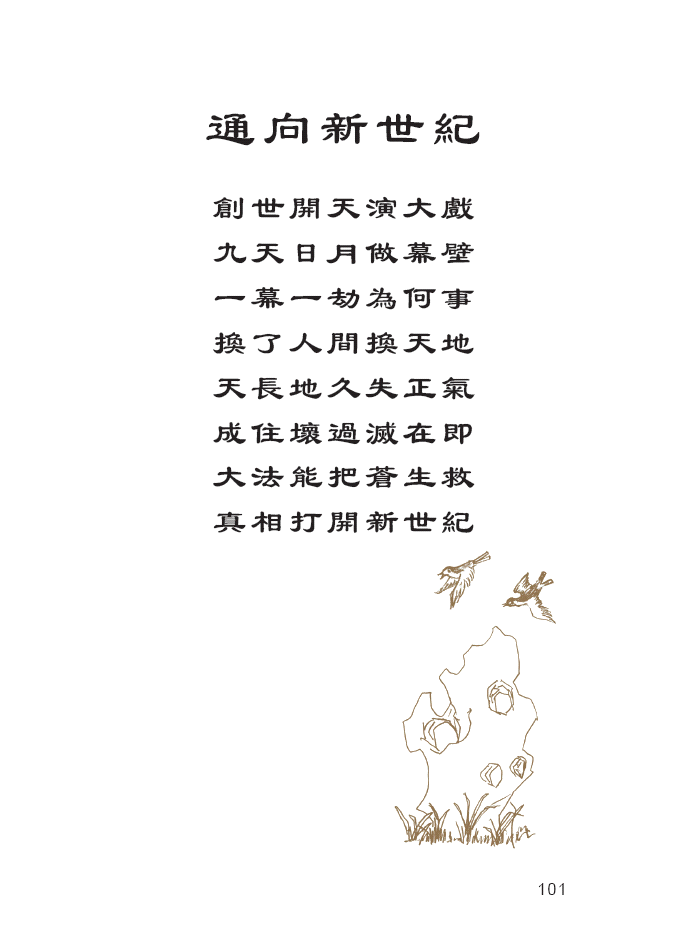 通向新世紀
創世開天演大戲
九天日月做幕壁
一幕一劫為何事
換了人間換天地
天長地久失正氣
成住壞過滅在即
大法能把蒼生救
真相打開新世紀
101